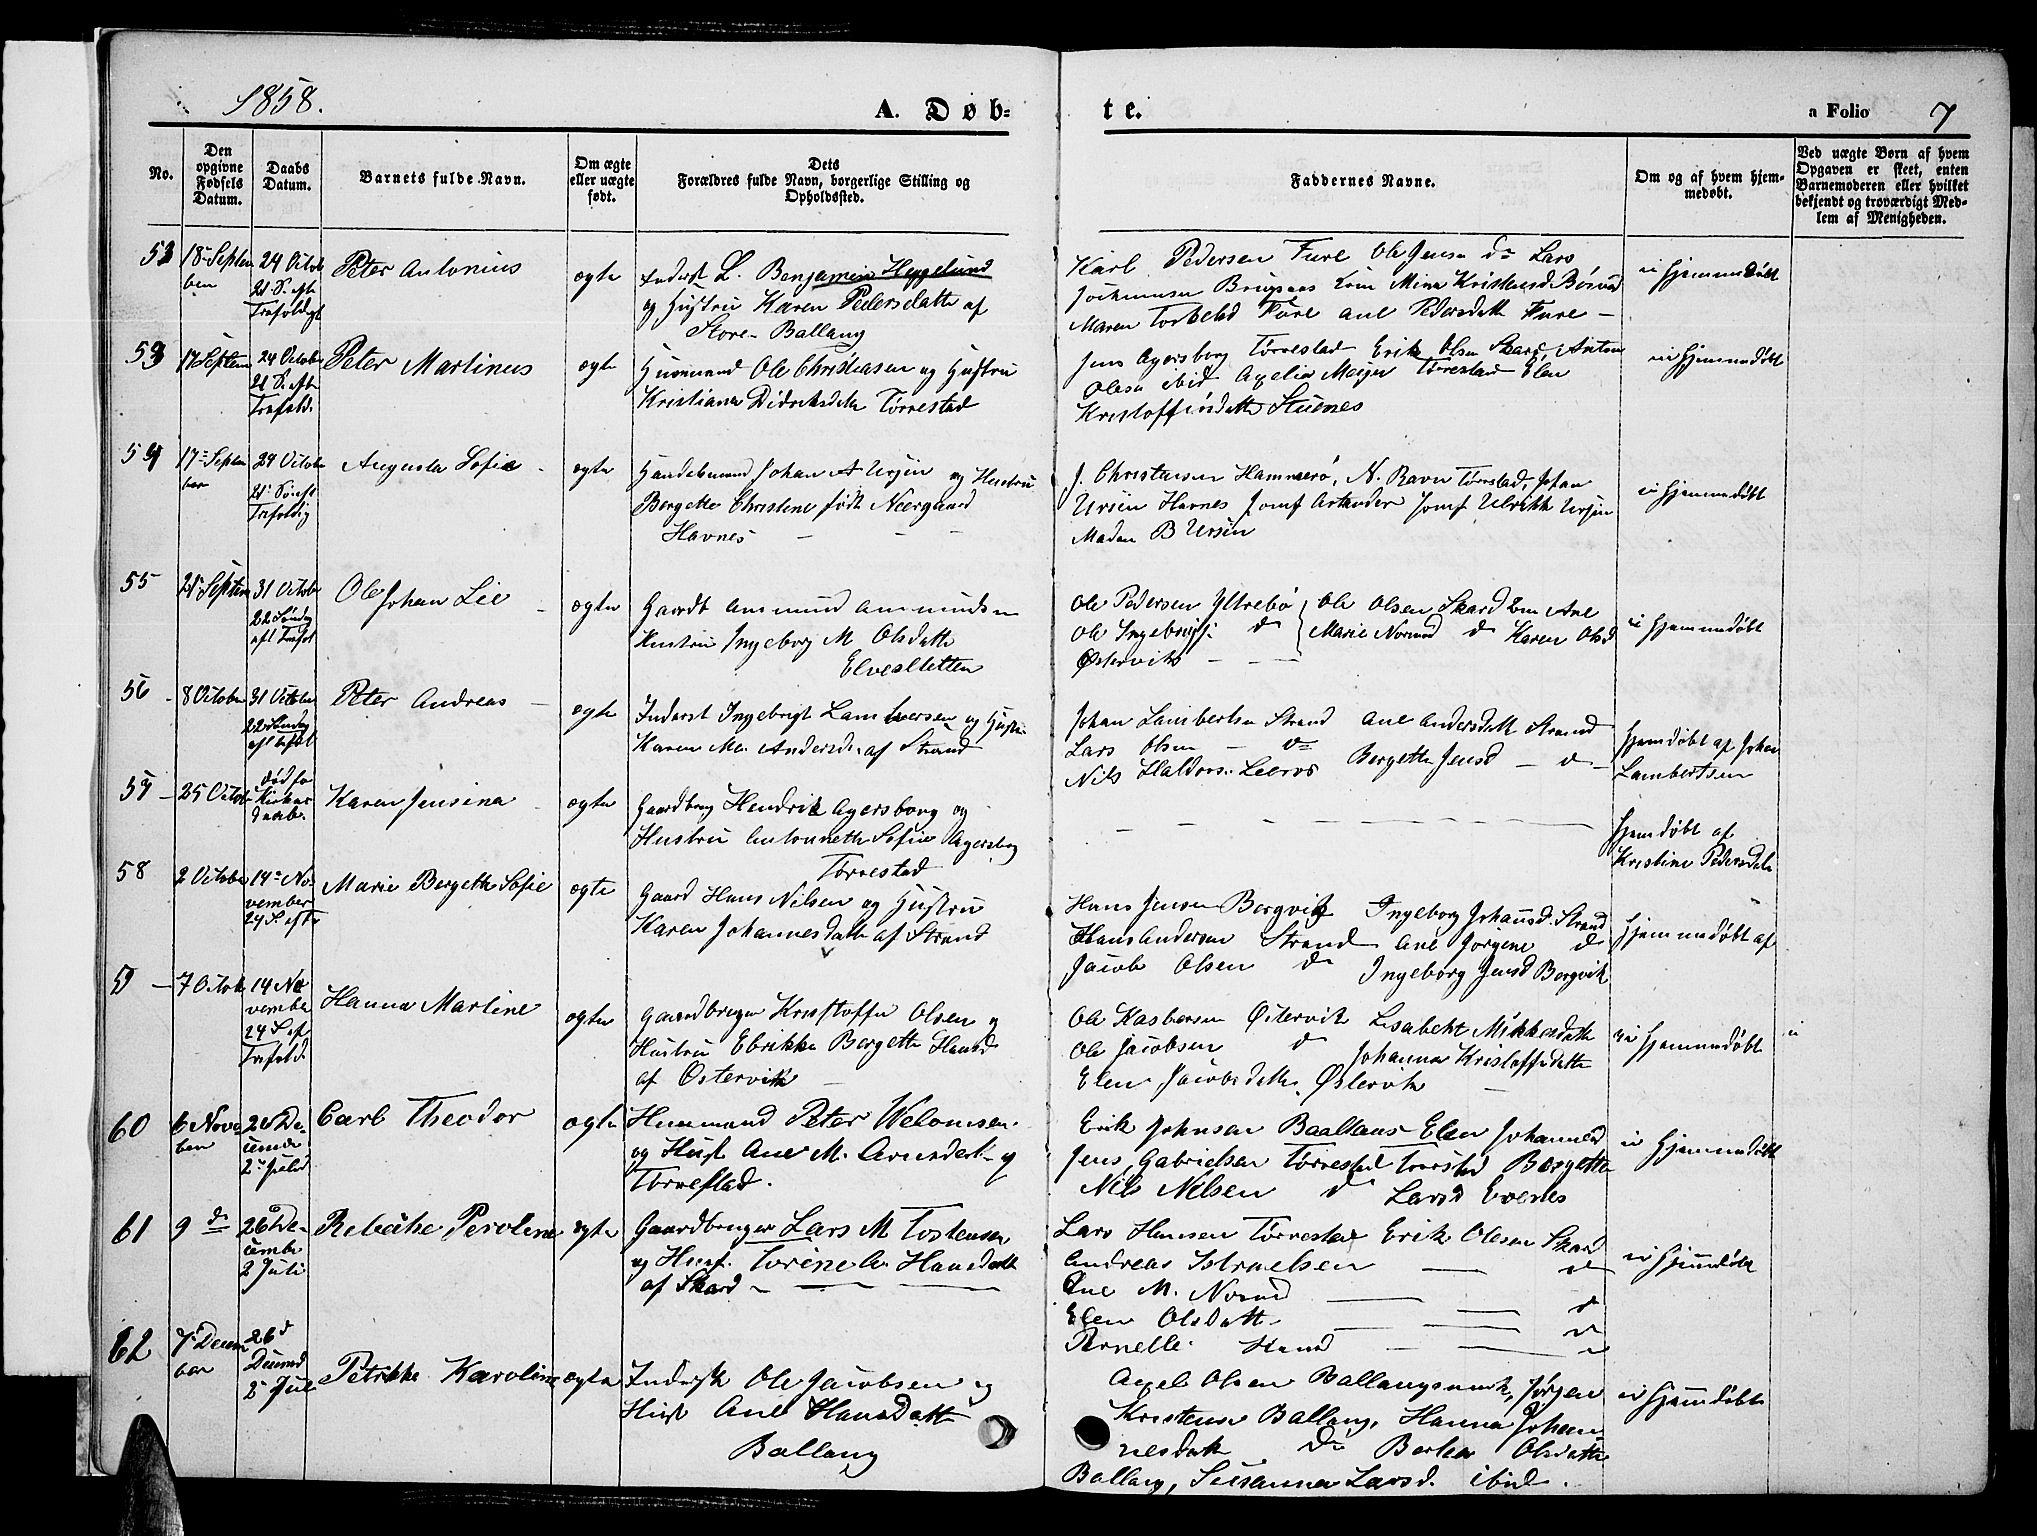 1858.
A. Døb-
te.
a Folio 7
No.
Den
opgivne
Fødsels
Datum.
Daabs
Datum.
Barnets fulde Navn.
Om ægte
eller uægte
født.
Dets
Forældres fulde Navn, borgerlige Stilling og
Opholdssted.
Faddernes Navne.
Om og af hvem hjem-
medøbt.
Ved uægte Børn af hvem
Opgaven er skeet, enten
Barnemoderen eller hvilket
bekjendt og troværdigt Med-
lem af Menigheden.
18 Septem
ber
24 Octob
21 S. eft
Trefoldigt
Peter Antonius
ægte
Inderst L. Benjamin Heggelund
og Hustru Karen Pedersdatte af
Store-Ballang
Karl Pedersen Fure Ole Jensen do Lars
Jochumsen Kristensd
Maren Fure Ane Pedersdatt Fure
ei hjemmedøbt
53
17 Septem
24 Octobe
21 S. eft
Trefold.
Peter Martinus
ægte
Huusmand Ole Christiasen og Hustru
Kristiana Didriksdatte Tørrestad
Jens Agersborg Tørrestad Erik Olsen Skard, Anton
Olsen ibid Meyer Tørrestad Elen
Kristoffersdatte Stuenes
ei hjemmedøbt
54
17 Septem
ber
24 Octobe
21 Sø. eft
Trefoldig
Augusta Sofie
ægte
Handelsmand Johan A Ursin og Hustru
Bergette Christine født Neergaard
Havnes
J. Christensen Hammerø, N. Ravn Tørrstad, Johan
Ursin Havnes Jomf Jomf Ulrikke Ursin
Madam B Ursin
ei hjemmedøbt
55
21 Septem
31 Octobe
22 Søndag
eft Trefol
Ole Johan Lie
ægte
Gaardb Ammund Ammundsen
Hustru Ingeborg M Olsdatte
Elvesletten
Ole Pedersen Yttrebø Ole Olsen Skard Ane
Ole Ingebrigtse do Marie Normand do Karen Olsd
Østervik
ei hjemmedøbt
56
8 October
31 Octobe
22 Søndag
eft trefol
Peter Andreas
ægte
Inderst Ingebrigt Lambersen og Hustru
Karen Ma. Andersd. af Strand
Johan Lambertsen Strand Ane Andersdatt Strand
Lars Olsen do Bergette Jensd do
Nils Haldors. Leeros
hjemdøbt af Johan
Lambertsen
57
25 Octob
død før
Kirkens
daab.
Karen Jensina
ægte
Gaardbrug Hendrik Agersborg og
Hustru Antonnette Sofie Agersborg
Tørrestad
hjemdøbt af
Kristine Pedersdatte
58
2 October
14 No-
vember
24 S eft
Marie Bergette Sofie
ægte
Gaard Hans Nilsen og Hustru
Karen Johannesdatte af Strand
Hans Jensen Bergvik Ingeborg Johansd. Strand
Hans Andersen Strand Ane Jørgine do
Jacob Olsen do Ingeborg Jensd Bergvik
hjemmedøbt af
7 Octob
14 No
vember
24 S eft
Trefold.
Hanna Martine
ægte
Gaardbruger Kristoffer Olsen og
Hustru Ebrikke Bergette Hansd
af Østervik
Ole Kasbersen Østervik Lisabeht Mikkelsdatte
Ole Jacobsen do Johanna Kristoffersdatte
Elen Jacobsdatte. Østervik
ei hjemmedøbt
60
6 Novem
ber
26 De-
cembr
2 Juled
Carl Theodor
ægte
Huusmand Peter Welomsen
og Hust Ane M. Arnsdatt
Tørrestad.
Erik Johnsen Baallans Elen Johannesd
Jens Gabrielsen Tørrestad Bergette
Nils Nilsen do Larsd Evenes
ei Hjemmedøbt
61
9 do
26 De-
cembr
2 Jul
Rebække Peroline
ægte
Gaardbruger Lars M Tostensen
og Hust. Torine A. Hansdatt
af Skard
Lars Hansen Tørrestad Erik Olsen Skard
Andreas Istraelsen do
Ane M. Normd do
Elen Olsdatt do
Pernelle Hansd
ei hjemmedøbt
62
7 Decem
ber
26d
Decemb
2 Jul
Petrikke Karoline
ægte
Inderst Ole Jacobsen og
Hust Ane Hansdatt
Ballang
Axel Olsen Ballangsmark, Jørgen
Kristensen Ballang, Hanna Johan-
nesdatt do Berka Olsdatte
Ballang, Susanna Larsd. ibid.
ei hjemmedøbt